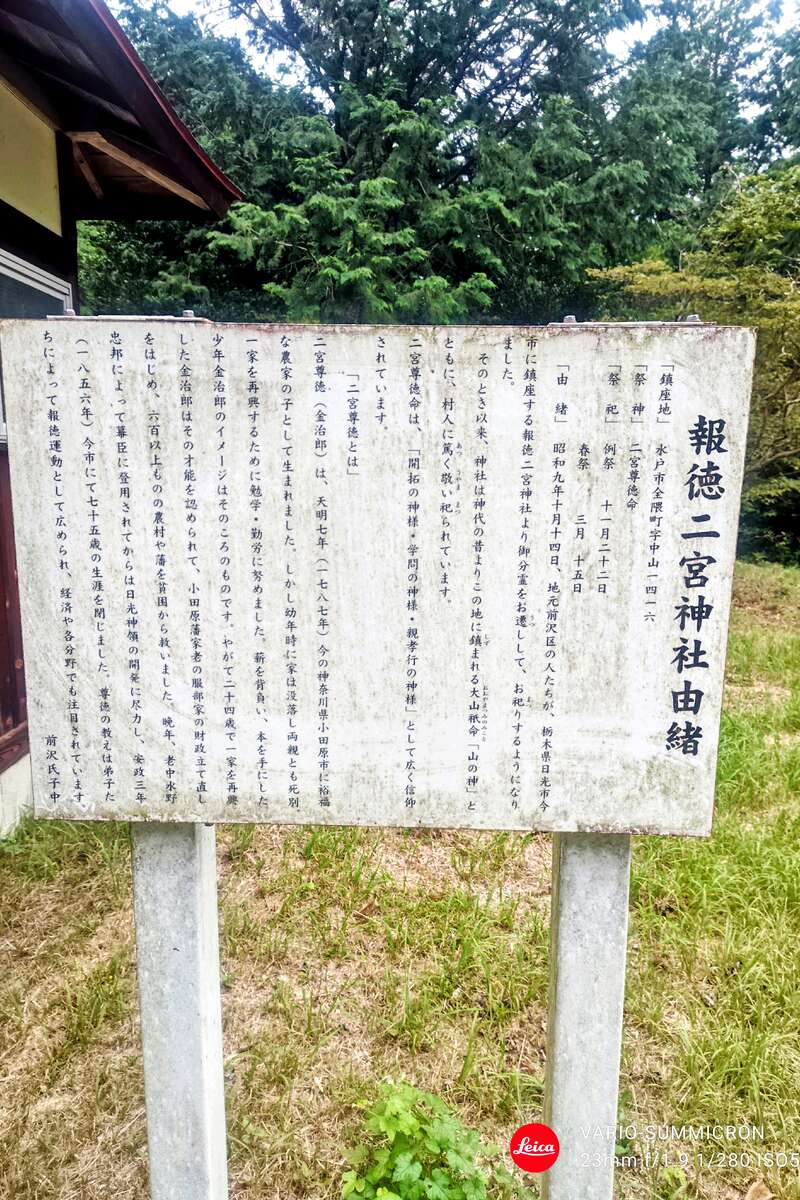 報徳二宮神社由緒
「鎮座地」 水戸市全隈町字中山一四一六
「祭 神」 二宮尊徳命
「祭 祀」 例祭 十一月二十二日
春祭 三月 十五日
「由 緒」 昭和九年十月十四日、地元前沢区の人たちが、栃木県日光市今
市に鎮座する報徳二宮神社より御分霊をお遷しして、お祀りするようになり
ました。
そのとき以来、神社は神代の昔よりこの地に鎮まれる大山祇命「山の神」と
ともに、村人に篤く敬い祀られています。
二宮尊徳命は、「開拓の神様・学問の神様・親孝行の神様」として広く信仰
されています。
「二宮尊徳とは」
二宮尊徳（金治郎）は、天明七年（一七八七年）今の神奈川県小田原市に裕福
な農家の子として生まれました。しかし幼年時に家は没落し両親とも死別。
一家を再興するために勉学・勤労に努めました。薪を背負い、本を手にした
少年金治郎のイメージはそのころのものです。やがて二十四歳で一家を再興
した金治郎はその才能を認められて、小田原藩家老の服部家の財政立て直し
をはじめ、六百以上ものの農村や藩を貧困から救いました。晩年、老中水野
忠邦によって幕臣に登用されてからは日光神領の開発に尽力し、安政三年
（一八五六年）今市にて七十五歳の生涯を閉じました。尊徳の教えは弟子た
ちによって報徳運動として広められ、経済や各分野でも注目されています。
前沢氏子中
Leica
VARIO-SUMMICRON
23mm f/1.9 1/280 ISO5